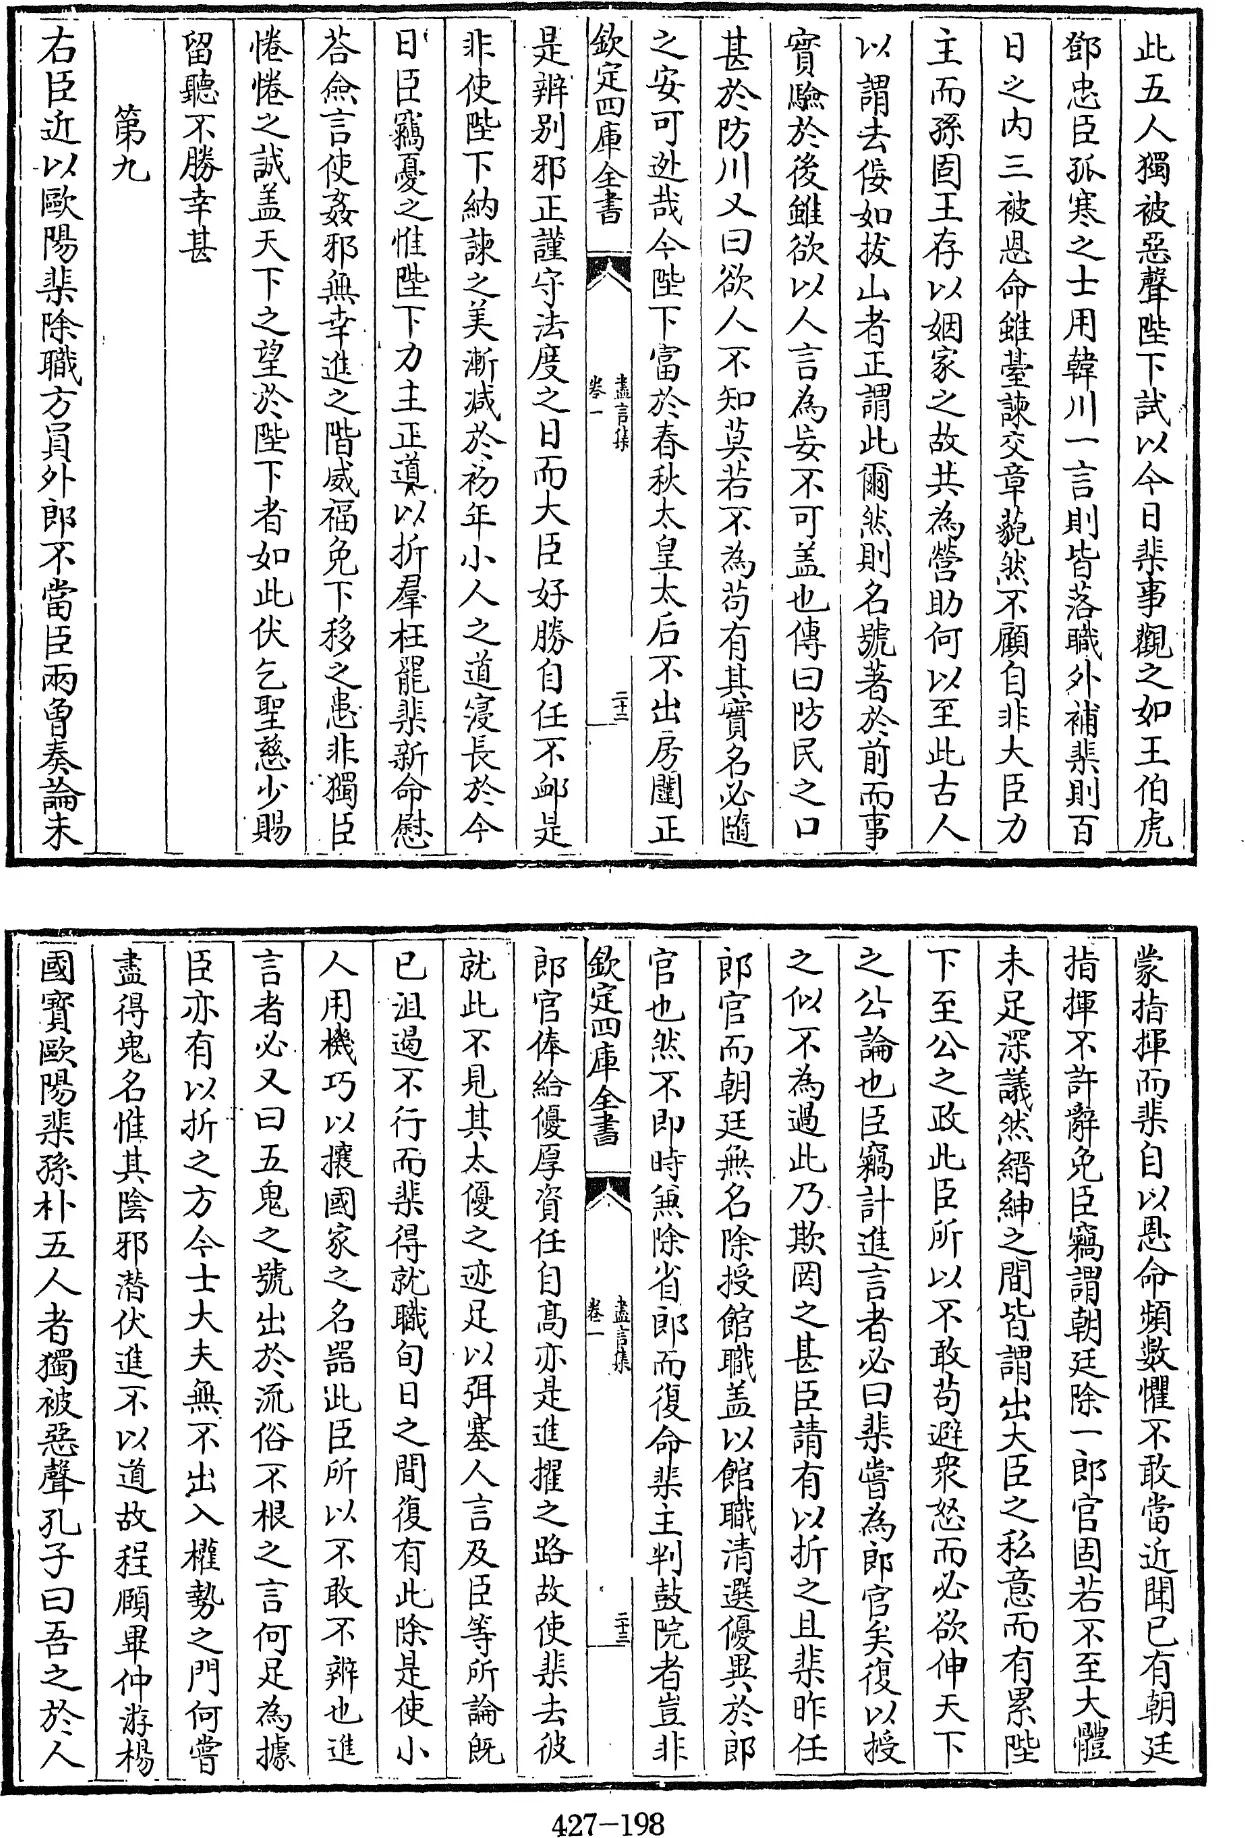 此五人獨被惡聲陛下試以今日棐事觀之如王伯虎
鄧忠臣孤寒之士用韓川一言則皆落職外補棐則百
日之内三被恩命雖臺諫交章藐然不顧自非大臣力
主而孫固王存以姻家之故共為營助何以至此古人
以謂去佞如拔山者正謂此爾然則名號著於前而事
實驗於後雖欲以人言為妄不可盖也傳曰防民之口
甚於防川又曰欲人不知莫若不為苟有其實名必隨
之安可逃哉今陛下富於春秋太皇太后不出房闥正
欽定四庫全書
盡言集
卷一
二十二
是辨别邪正謹守法度之日而大臣好勝自任不卹是
非使陛下納諫之美漸減於初年小人之道寖長於今
日臣竊憂之惟陛下力主正道以折羣枉罷棐新命慰
荅僉言使姦邪無幸進之階威福免下移之患非獨臣
惓惓之誠盖天下之望於陛下者如此伏乞聖慈少賜
留聽不勝幸甚
第九
右臣近以歐陽棐除職方員外郎不當臣兩曽奏論未
蒙指揮而棐自以恩命頻數懼不敢當近聞已有朝廷
指揮不許辭免臣竊謂朝廷除一郎官固若不至大體
未足深議然縉紳之間皆謂出大臣之私意而有累陛
下至公之政此臣所以不敢苟避衆怒而必欲伸天下
之公論也臣竊計進言者必曰棐嘗為郎官矣復以授
之似不為過此乃欺罔之甚臣請有以折之且棐昨任
郎官而朝廷無名除授館職盖以館職清選優異於郎
官也然不即時兼除省郎而復命棐主判鼓院者豈非
欽定四庫全書
盡言集
卷一
二十三
郎官俸給優厚資任自高亦是進擢之路故使棐去彼
就此不見其太優之迹足以弭塞人言及臣等所論既
已沮遏不行而棐得就職旬日之間復有此除是使小
人用機巧以攘國家之名器此臣所以不敢不辨也進
言者必又曰五鬼之號出於流俗不根之言何足為據
臣亦有以折之方今士大夫無不出入權勢之門何嘗
盡得鬼名惟其陰邪潜伏進不以道故程頤畢仲游楊
國寳歐陽棐孫朴五人者獨被惡聲孔子曰吾之於人
427-198